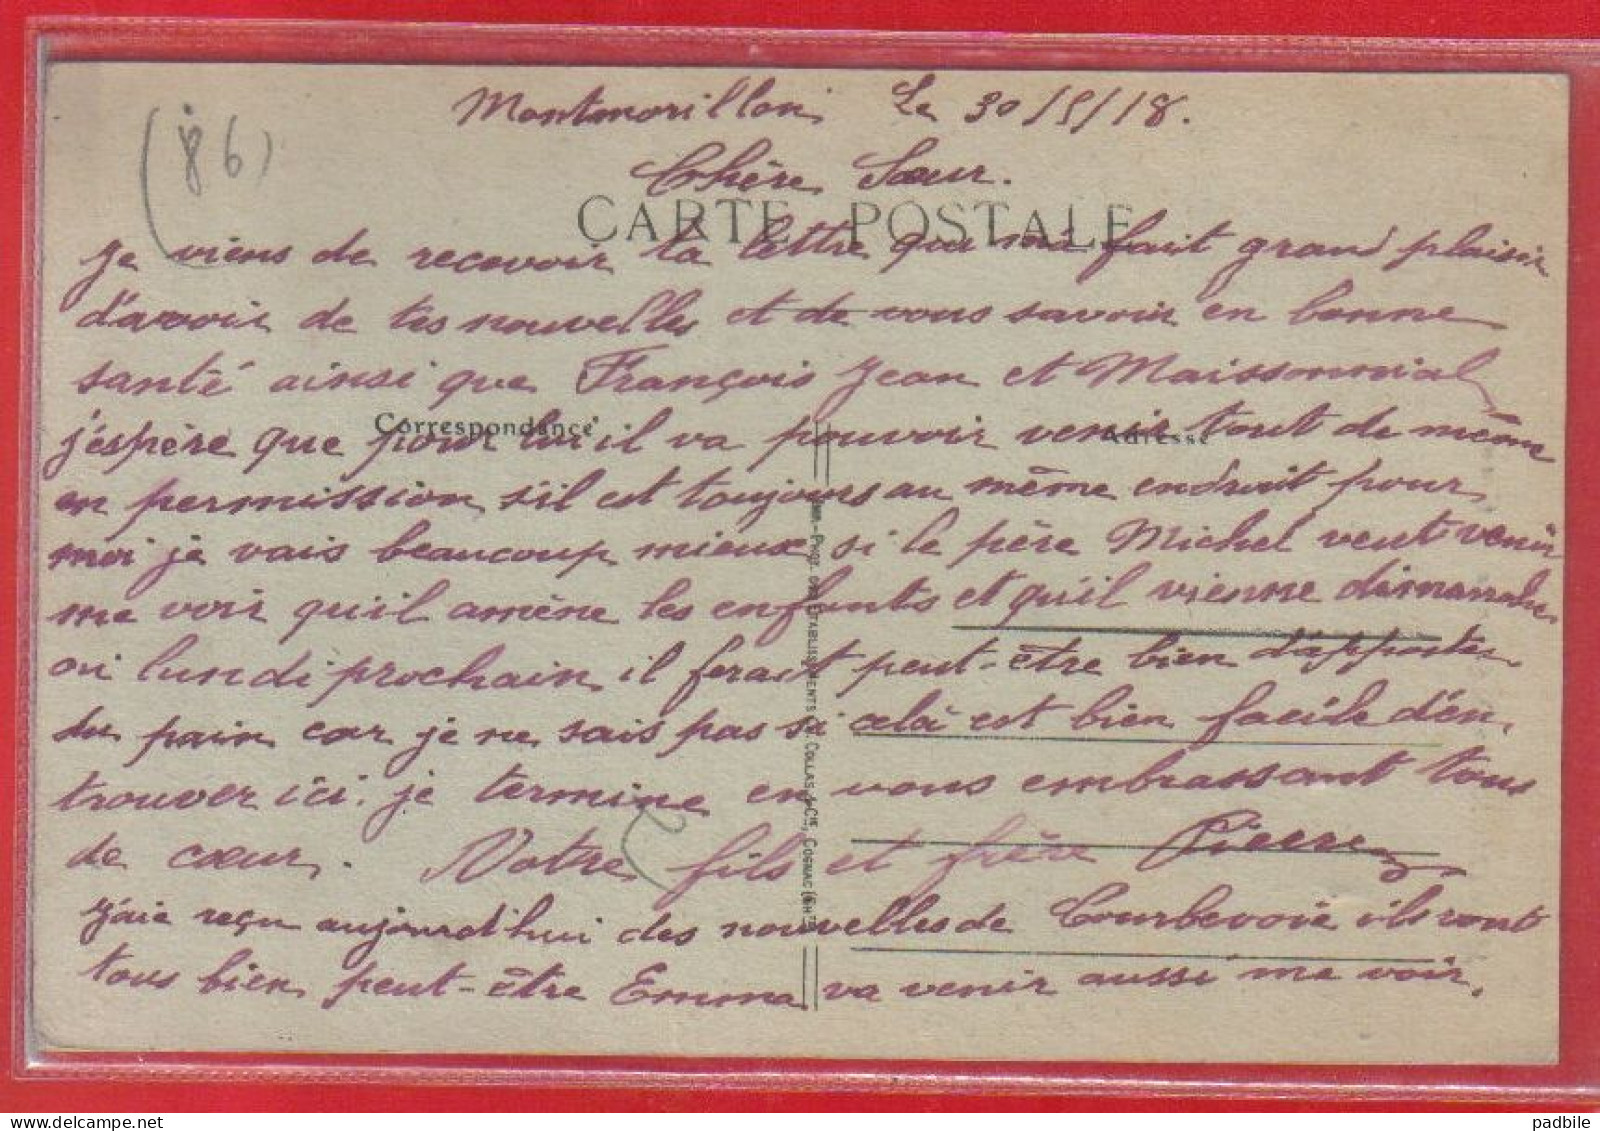 (86)
Montmorillon Le 30/5/18.
Chère Sœur.
CARTE POSTALE
je viens de recevoir ta lettre qui m'a fait grand plaisir
d'avoir de tes nouvelles et de vous savoir en bonne
santé ainsi que François Jean et Maissonnial
Correspondance
Adresse
j'éspère que pour lui il va pouvoir venir tout de même
en permission s'il est toujours au même endroit pour
moi je vais beaucoup mieux si le père Michel veut venir
me voir qu'il amène les enfants et qu'il vienne dimanche
ou lundi prochain il ferait peut-être bien d'apporter
du pain car je ne sais pas si celà est bien facile d'én
trouver ici. je termine en vous embrassant tous
de cœur. Votre fils et frère Pierre
J'aie reçu aujourd'hui des nouvelles de Courbevoie ils vont
tous bien peut-être Emma va venir aussi me voir.
Imp.-Phot. des Etablissements Collas & Cie, Cognac (Chte)
padbile